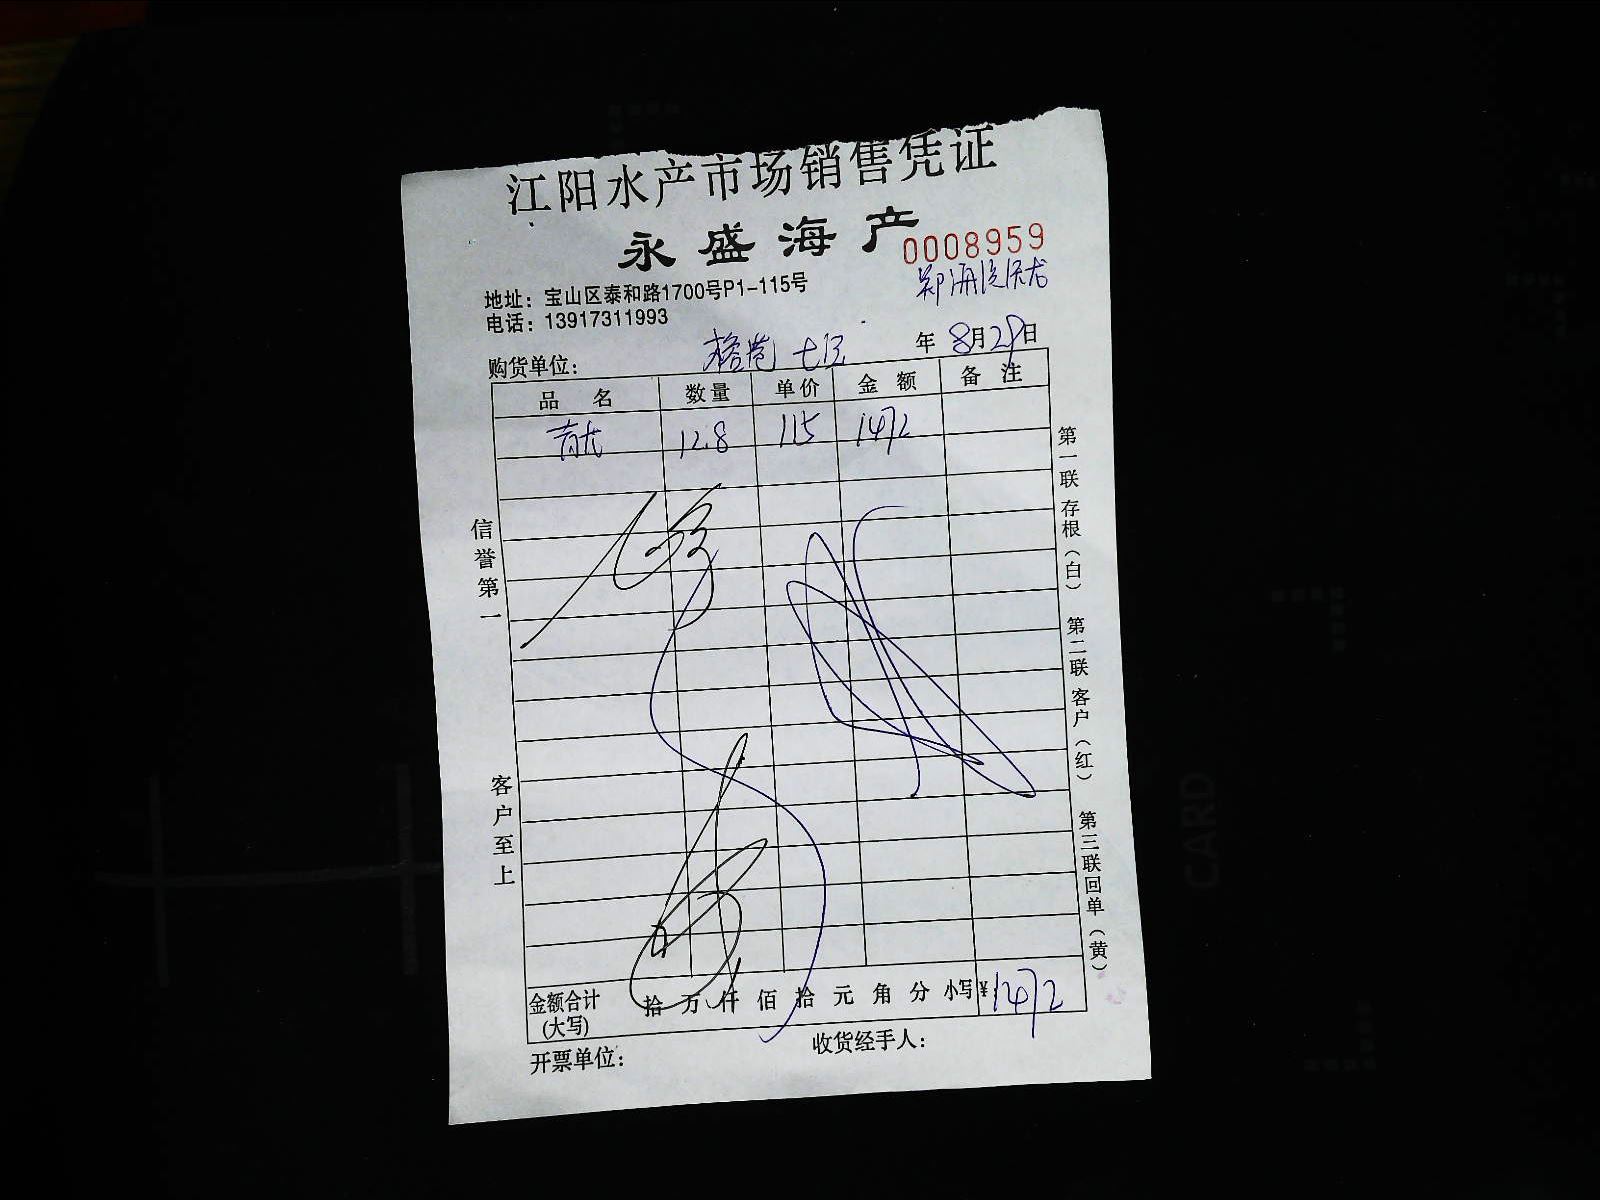 江阳水产市场销售凭证
永盛海产
0008959
地址：宝山区泰和路1700号P1-115号
电话：13917311993
购货单位：
年 8月29日
品 名 数量 单价 金 额 备 注
青龙 12.8 115 1472
信誉第一
客户至上
第一联 存根（白） 第二联 客户（红） 第三联回单（黄）
金额合计 拾 万 仟 佰 拾 元 角 分 小写¥1472
(大写)
开票单位： 收货经手人：
CARD